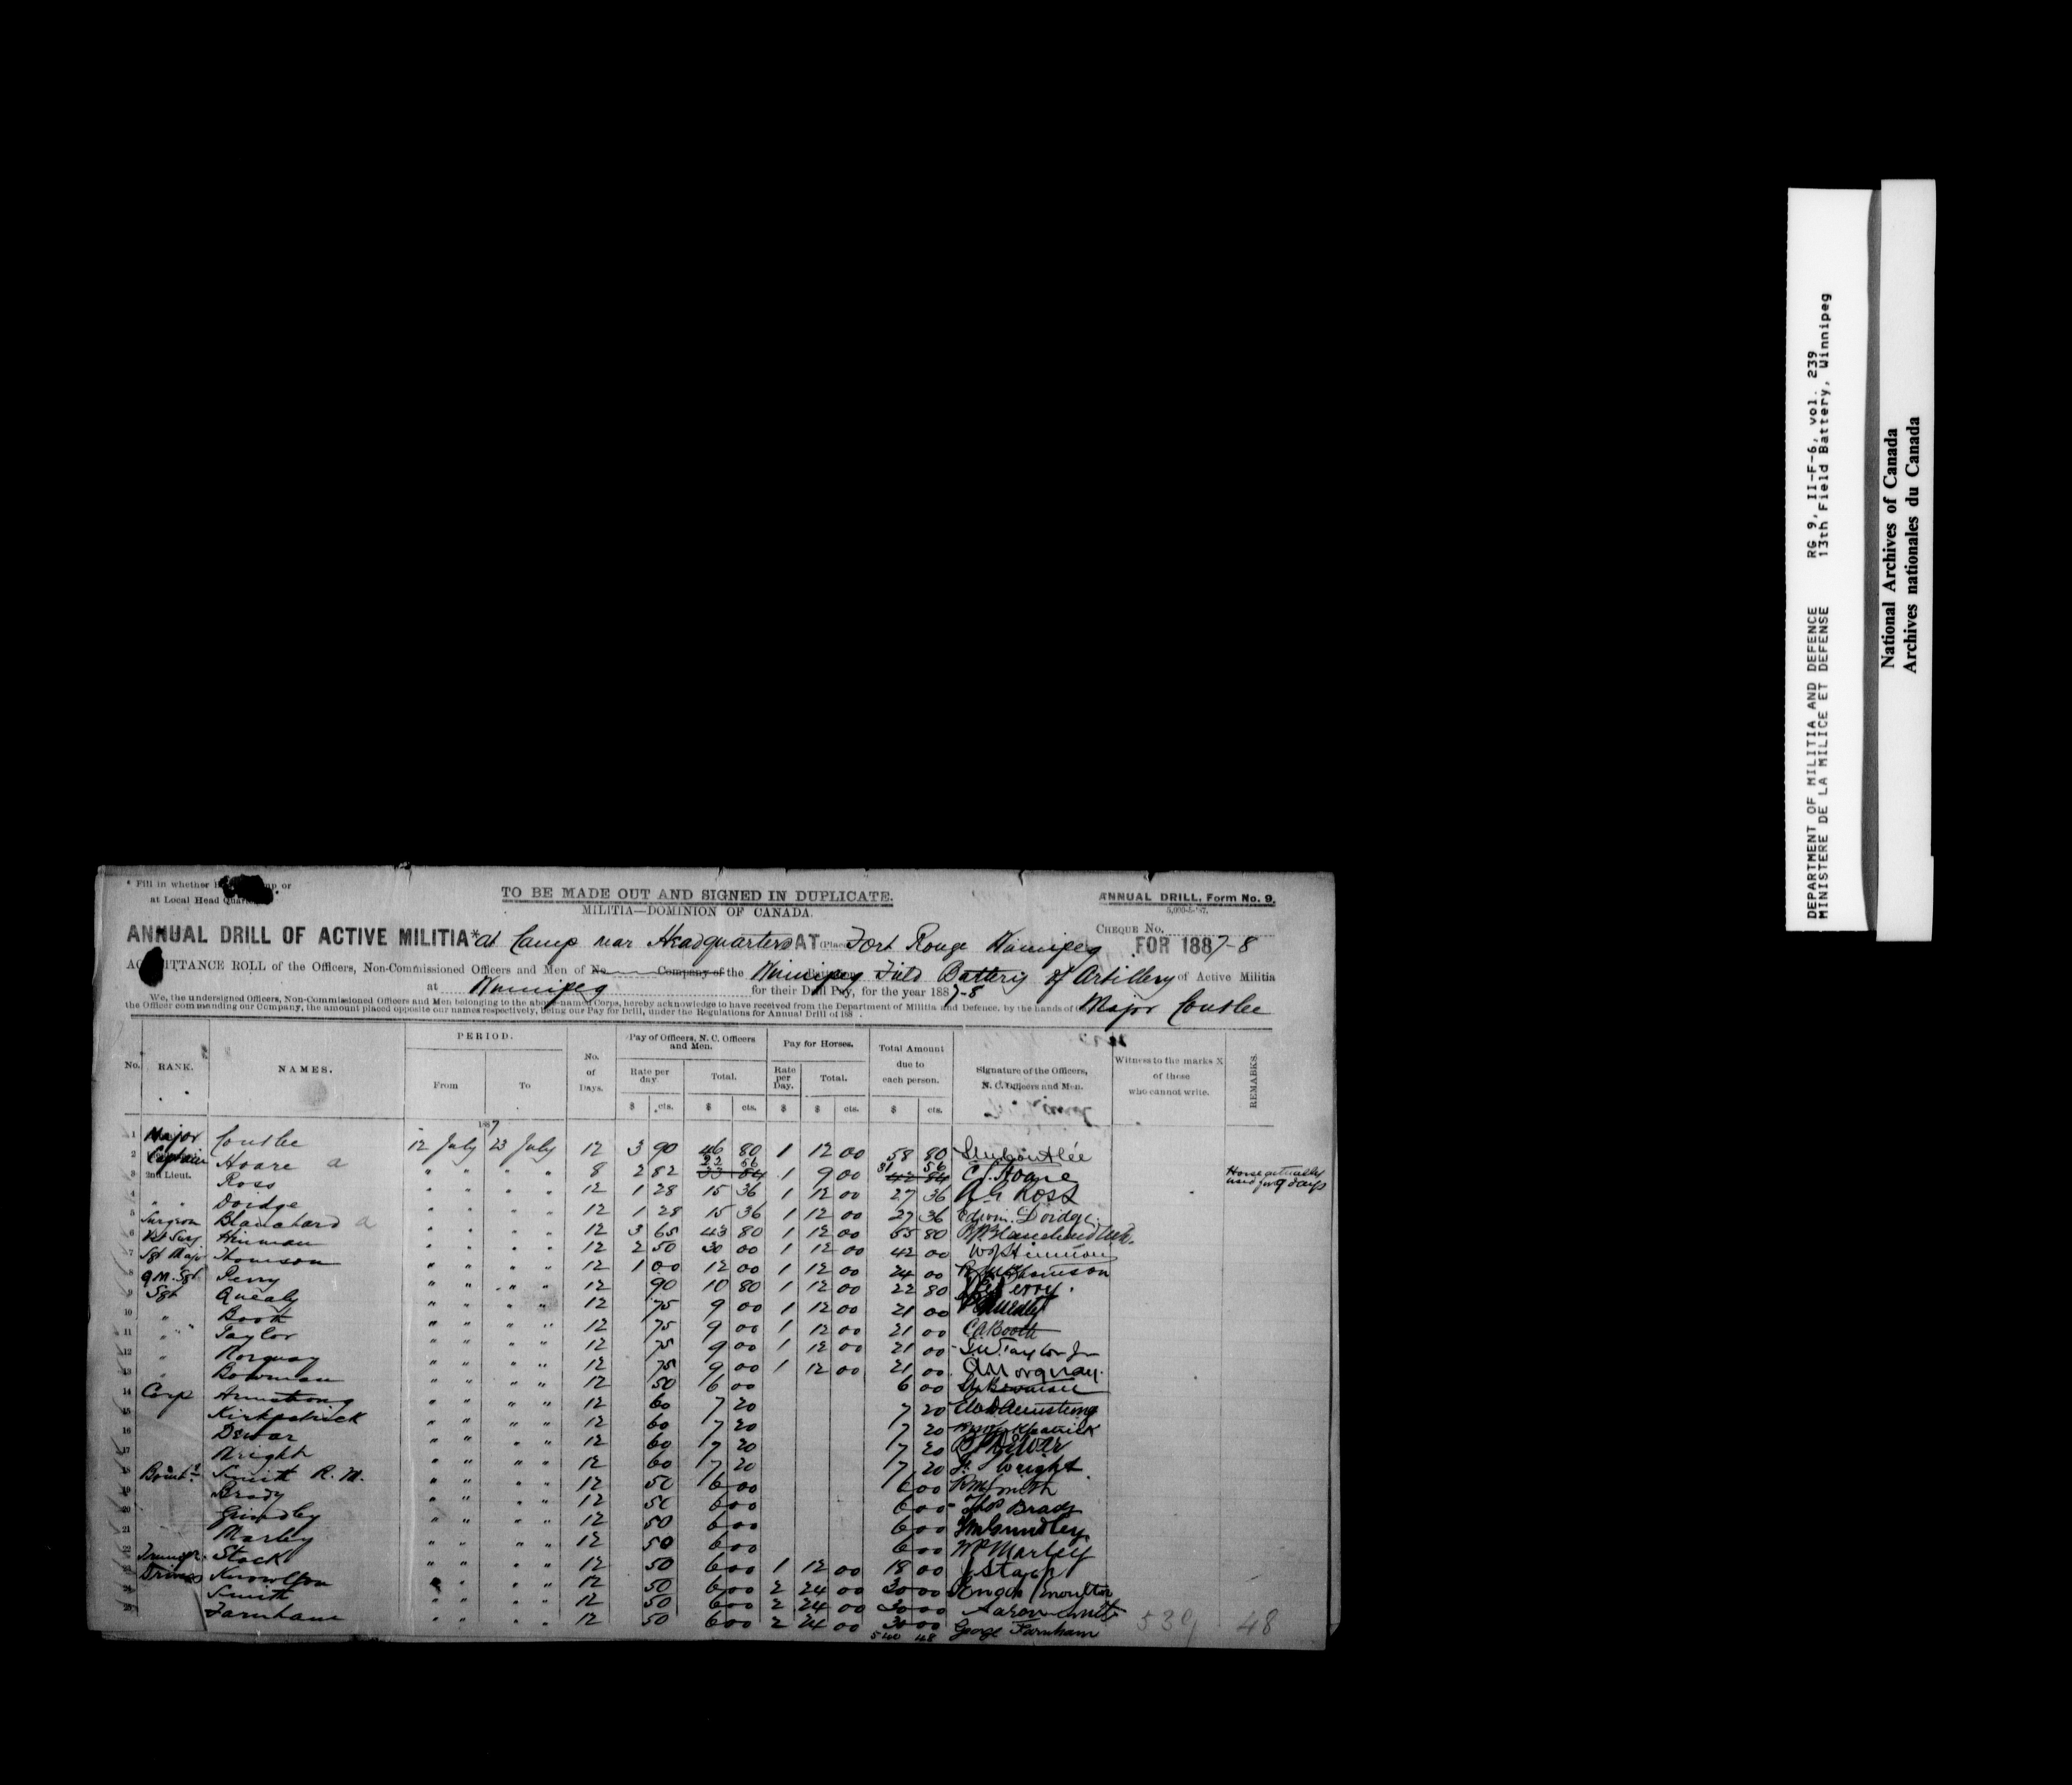 DEPARTMENT OF MILITIA AND DEFENCE RG 9, II-F-6, vol. 239
MINISTERE DE LA MILICE ET DEFENSE 13th Field Battery, Winnipeg
National Archives of Canada
Archives nationales du Canada
* Fill in whether in or
at Local Head Quar
TO BE MADE OUT AND SIGNED IN DUPLICATE.
ANNUAL DRILL, Form No. 9.
MILITIA—DOMINION OF CANADA.
CHEQUE No.
ANNUAL DRILL OF ACTIVE MILITIA* at Camp near Headquarters AT (Place) Fort Rouge Winnipeg FOR 1887-8
ACQUITTANCE ROLL of the Officers, Non-Commissioned Officers and Men of No. Company of the Winnipeg Field Battery of Artillery of Active Militia
at Winnipeg for their Drill Pay, for the year 1887-8
We, the undersigned Officers, Non-Commissioned Officers and Men belonging to the above-named Corps, hereby acknowledge to have received from the Department of Militia and Defence, by the hands of Major Coutlee
the Officer commanding our Company, the amount placed opposite our names respectively, being our Pay for Drill, under the Regulations for Annual Drill of 188 .
No. RANK. NAMES. PERIOD. From To No. of Days. Pay of Officers, N. C. Officers and Men. Rate per day. $ cts. Total. $ cts. Pay for Horses. Rate per Day. $ Total. $ cts. Total Amount due to each person. $ cts. Signature of the Officers, N. C. Officers and Men. Witness to the marks X of those who cannot write. REMARKS.
1887
1 Major Coutlee 12 July 23 July 12 3 90 46 80 1 12 00 58 80
2 Captain Hoare a " " " " 8 2 82 22 56 33 84 1 9 00 31 56 42 84 C. J. Hoare Horse actually used for 9 days
3 2nd Lieut. Ross " " " " 12 1 28 15 36 1 12 00 27 36 Ross
4 " " Doidge " " " " 12 1 28 15 36 1 12 00 27 36 Edwin Doidge
5 Surgeon Blanchard a " " " " 12 3 65 43 80 1 12 00 55 80
6 Vet Surg. Hinman " " " " 12 2 50 30 00 1 12 00 42 00 W Hinman
7 Sgt Major Thomson " " " " 12 1 00 12 00 1 12 00 24 00 Thomson
8 Q M. Sgt. Perry " " " " 12 90 10 80 1 12 00 22 80 Perry
9 Sgt Quealy " " " " 12 75 9 00 1 12 00 21 00 Quealy
10 " Booth " " " " 12 75 9 00 1 12 00 21 00 C A Booth
11 " Taylor " " " " 12 75 9 00 1 12 00 21 00 Taylor Jn
12 " Norquay " " " " 12 75 9 00 1 12 00 21 00 Norquay
13 " Bowman " " " " 12 50 6 00 6 00 Bowman
14 Corp Armstrong " " " " 12 60 7 20 7 20 Armstrong
15 Kirkpatrick " " " " 12 60 7 20 7 20 Kirkpatrick
16 Dewar " " " " 12 60 7 20 7 20 Dewar
17 Wright " " " " 12 60 7 20 7 20 Wright
18 Smith R. M. " " " " 12 50 6 00 6 00 R M Smith
19 Brady " " " " 12 50 6 00 6 00 Thos Brady
20 Grindley " " " " 12 50 6 00 6 00 Grindley
21 Marley " " " " 12 50 6 00 6 00 Wm Marley
22 Stack " " " " 12 50 6 00 1 12 00 18 00 J Stack
23 Drivers " " " 12 50 6 00 2 24 00 30 00
24 Smith " " " " 12 50 6 00 2 24 00 30 00 Aaron Smith
25 Farnham " " " " 12 50 6 00 2 24 00 30 00 George Farnham
540 48
539 48